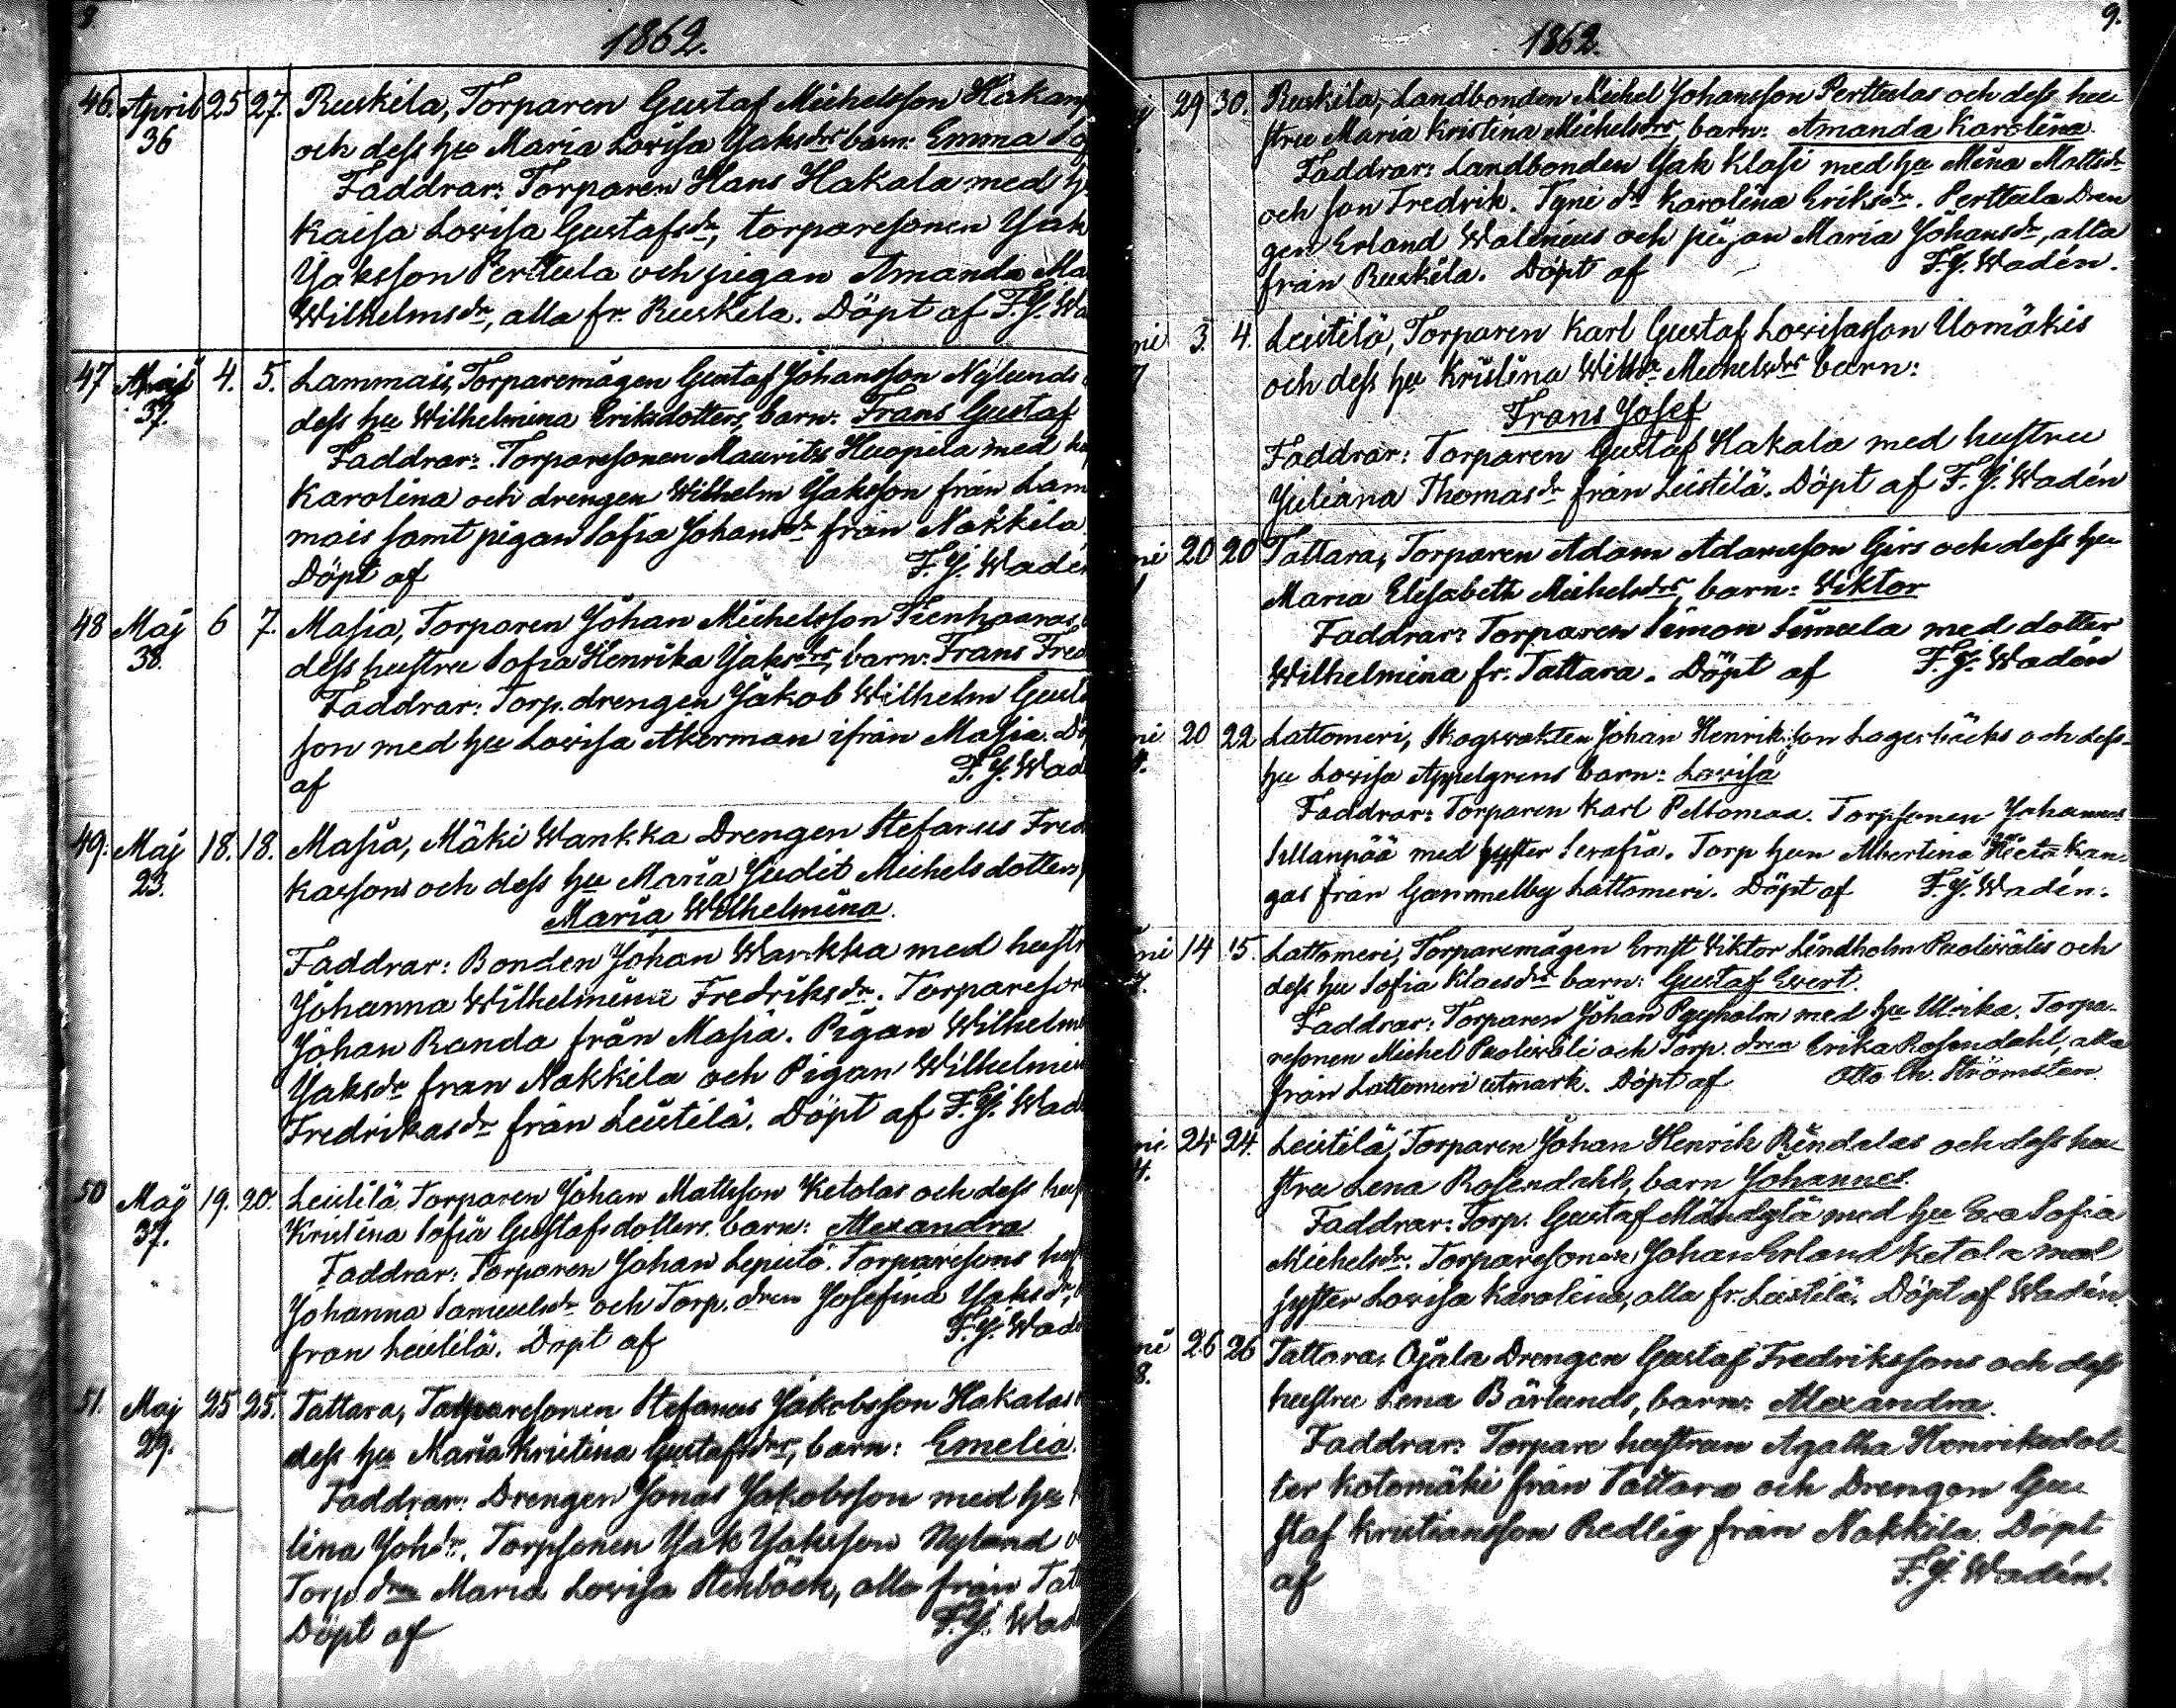 8.
1862.
46. April 25 27. Ruskila, Torparen Gustaf Michelsson Hakan
36 och dess hu Maria Lovisa Jaksdrs barn: Emma So
Faddrar: Torparen Hans Hakala med h
Kaisa Lovisa Gustafsdr, torparesonen Jak
Jaksson Perttula och pigan Amanda Ma
Wilhelmsdr, alla fr. Ruskila. Döpt af F.J. Wa
47 4. 5. Lammais, Torparemågen Gustaf Johansson Nylunds
37. dess hu Wilhelmina Eriksdotters, barn: Frans Gustaf
Faddrar: Torparesonen Mauritz Huopila med hu
Karolina och drengen Wilhelm Jaksson från Lam
mais samt pigan Sofia Johansdr från Nakkila
Döpt af F.J. Wadén
48 Maj 6 7. Masia, Torparen Johan Michelsson Kenhaaras
38. dess hustru Sofia Henrika Jaksdrs, barn: Frans Fred
Faddrar: Torp. drengen Jakob Wilhelm Gust
son med hu Lovisa Åkerman ifrån Masia. Dö
af F.J. Wad
49. Maj 18. 18. Masia, Mäki Wankka Drengen Stefanus Fred
23. kassons och dess hu Maria Judit Michelsdotters,
Maria Wilhelmina.
Faddrar: Bonden Johan Wankka med hustr
Johanna Wilhelmina Fredriksdr. Torpareson
Johan Randa från Masia. Pigan Wilhelm
Jaksdr från Nakkila och Pigan Wilhelmin
Fredrikasdr från Leistilä. Döpt af F.J. Wad
50 Maj 19. 20. Leistilä Torparen Johan Mattsson Ketolas och dess hus
37. Kristina Sofia Gustafsdotters, barn: Alexandra
Faddrar: Torparen Johan Leputo. Torparesons hus
Johanna Samuelsdr och Torp. dren Josefina Jaksdr,
från Leistilä. Döpt af F.J. Wad
51. Maj 25 25. Tattara, Torparesonen Stefanus Jakobsson Hakalas
29. dess hu Maria Kristina Gustafsdrs, barn: Emelia.
Faddrar: Drengen Jonas Jakobsson med hu
lina Johdr. Torpsonen Jak Jaksson Nylund
Torp. dren Maria Lovisa Stenböck, alla från Tatt
Döpt af F.J. Wad
9.
1862.
29 30. Ruskila, Landbonden Michel Johansson Perttulas och dess hu
stru Maria Kristina Michelsdrs, barn: Amanda Karolina.
Faddrar: Landbonden Jak Klasi med hu Mina Mattsdr
och son Fredrik. Karolina Eriksdr. Perttula Dren
gen Erland Walenius och pigan Maria Johansdr, alla
från Ruskila. Döpt af F.J. Wadén.
ni 3. 4. Leistilä, Torparen Karl Gustaf Lovisasson Uomäkis
och dess hu Kristina Michelsdrs barn:
Frans Josef
Faddrar: Torparen Gustaf Hakala med hustru
Juliana Thomasdr från Leistilä. Döpt af F.J. Wadén
ni 20 20 Tattara, Torparen Adam Adamsson Girs och dess hu
Maria Elisabeth Michelsdrs, barn: Viktor
Faddrar: Torparen Simon Simula med dotter
Wilhelmina fr. Tattara. Döpt af F.J. Wadén
ni 20 22 Lattomeri, Skogsvakten Johan Henriksson Lagerbäcks och dess
hu Lovisa Appelgrens barn: Lovisa
Faddrar: Torparen Karl Peltomaa. Torpsonen Johannes
Sillanpää med syster Serafia. Torp hun Albertina Kan-
gas från Gammelby Lattomeri. Döpt af F.J. Wadén.
ni 14 15. Lattomeri, Torparemågen Ernst Viktor Lindholm Puolivälis och
7. dess hu Sofia Klasdrs barn: Gustaf Evert.
Faddrar: Torparen Johan Payholm med hu Ulrika. Torpa-
resonen Michel Puoliväli och Torp. dren Erika Rosendahl, alla
från Lattomeri utmark. Döpt af Otto Ch. Strömsten.
ni 24 24. Leistilä, Torparen Johan Henrik Rindalas och dess hu
4. stru Lena Rosendahls, barn Johannes.
Faddrar: Torp. Gustaf Mändylä med hu Eva Sofia
Michelsdr. Torparesonen Johan Erland Ketola med
syster Lovisa Karolina, alla fr. Leistilä. Döpt af Wadén.
ni 26 26 Tattara, Ojala Drengen Gustaf Fredrikssons och dess
8. hustru Lena Bärlunds, barn: Alexandra.
Faddrar: Torpare hustrun Agatha Henriksdot-
ter Kotomäki från Tattara och Drengen Gu
staf Kristiansson Redlig från Nakkila. Döpt
af F.J. Wadén.